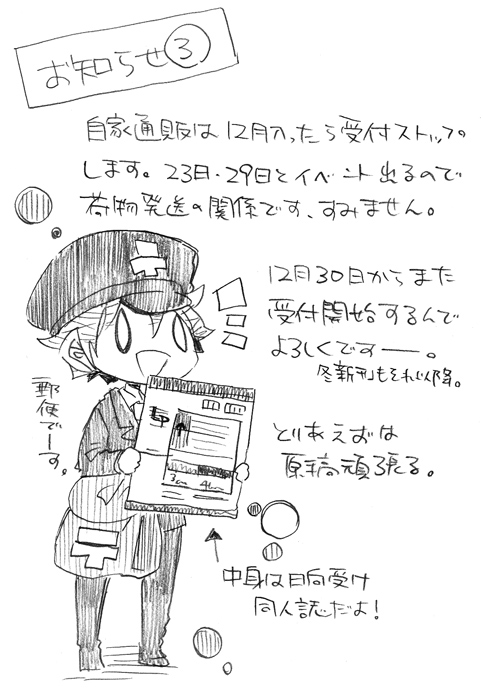 お知らせ③
自家通販は12月入ったら受付ストップ
します。23日・29日とイベント出るので
荷物発送の関係です、すみません。
12月30日からまた
受付開始するんで
よろしくですー。
冬新刊もそれ以降。
郵便でーす。
とりあえずは
原稿頑張る。
3cm 4cm
中身は日向受け
同人誌だよ!